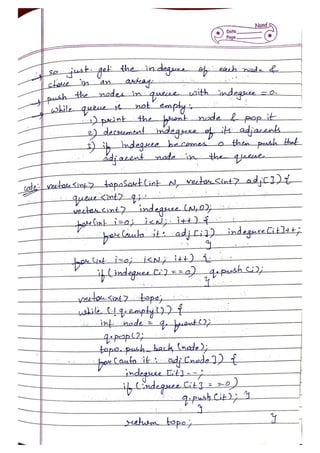 Nand
Date
Page
so just get the indegree of each node &
store in an array
push the nodes in queue with indegree = 0.
while queue is not empty:
1) print the front node & pop it
2) decrement indegree of its adjacents
3) if indegree becomes 0 then push that
adjacent node in the queue.
code: vector<int> topoSort(int N, vector<int> adj[]) {
queue<int> q;
vector<int> indegree (N,0);
for(int i=0; i<N; i++) {
for(auto it: adj[i]) indegree[it]++;
}
for(int i=0; i<N; i++) {
if (indegree[i]==0) q.push(i);
}
vector<int> topo;
while (!q.empty()) {
int node = q.front();
q.pop();
topo.push_back(node);
for(auto it: adj[node]) {
indegree[it]--;
if (indegree[it]==0)
q.push(it); }
}
return topo; }